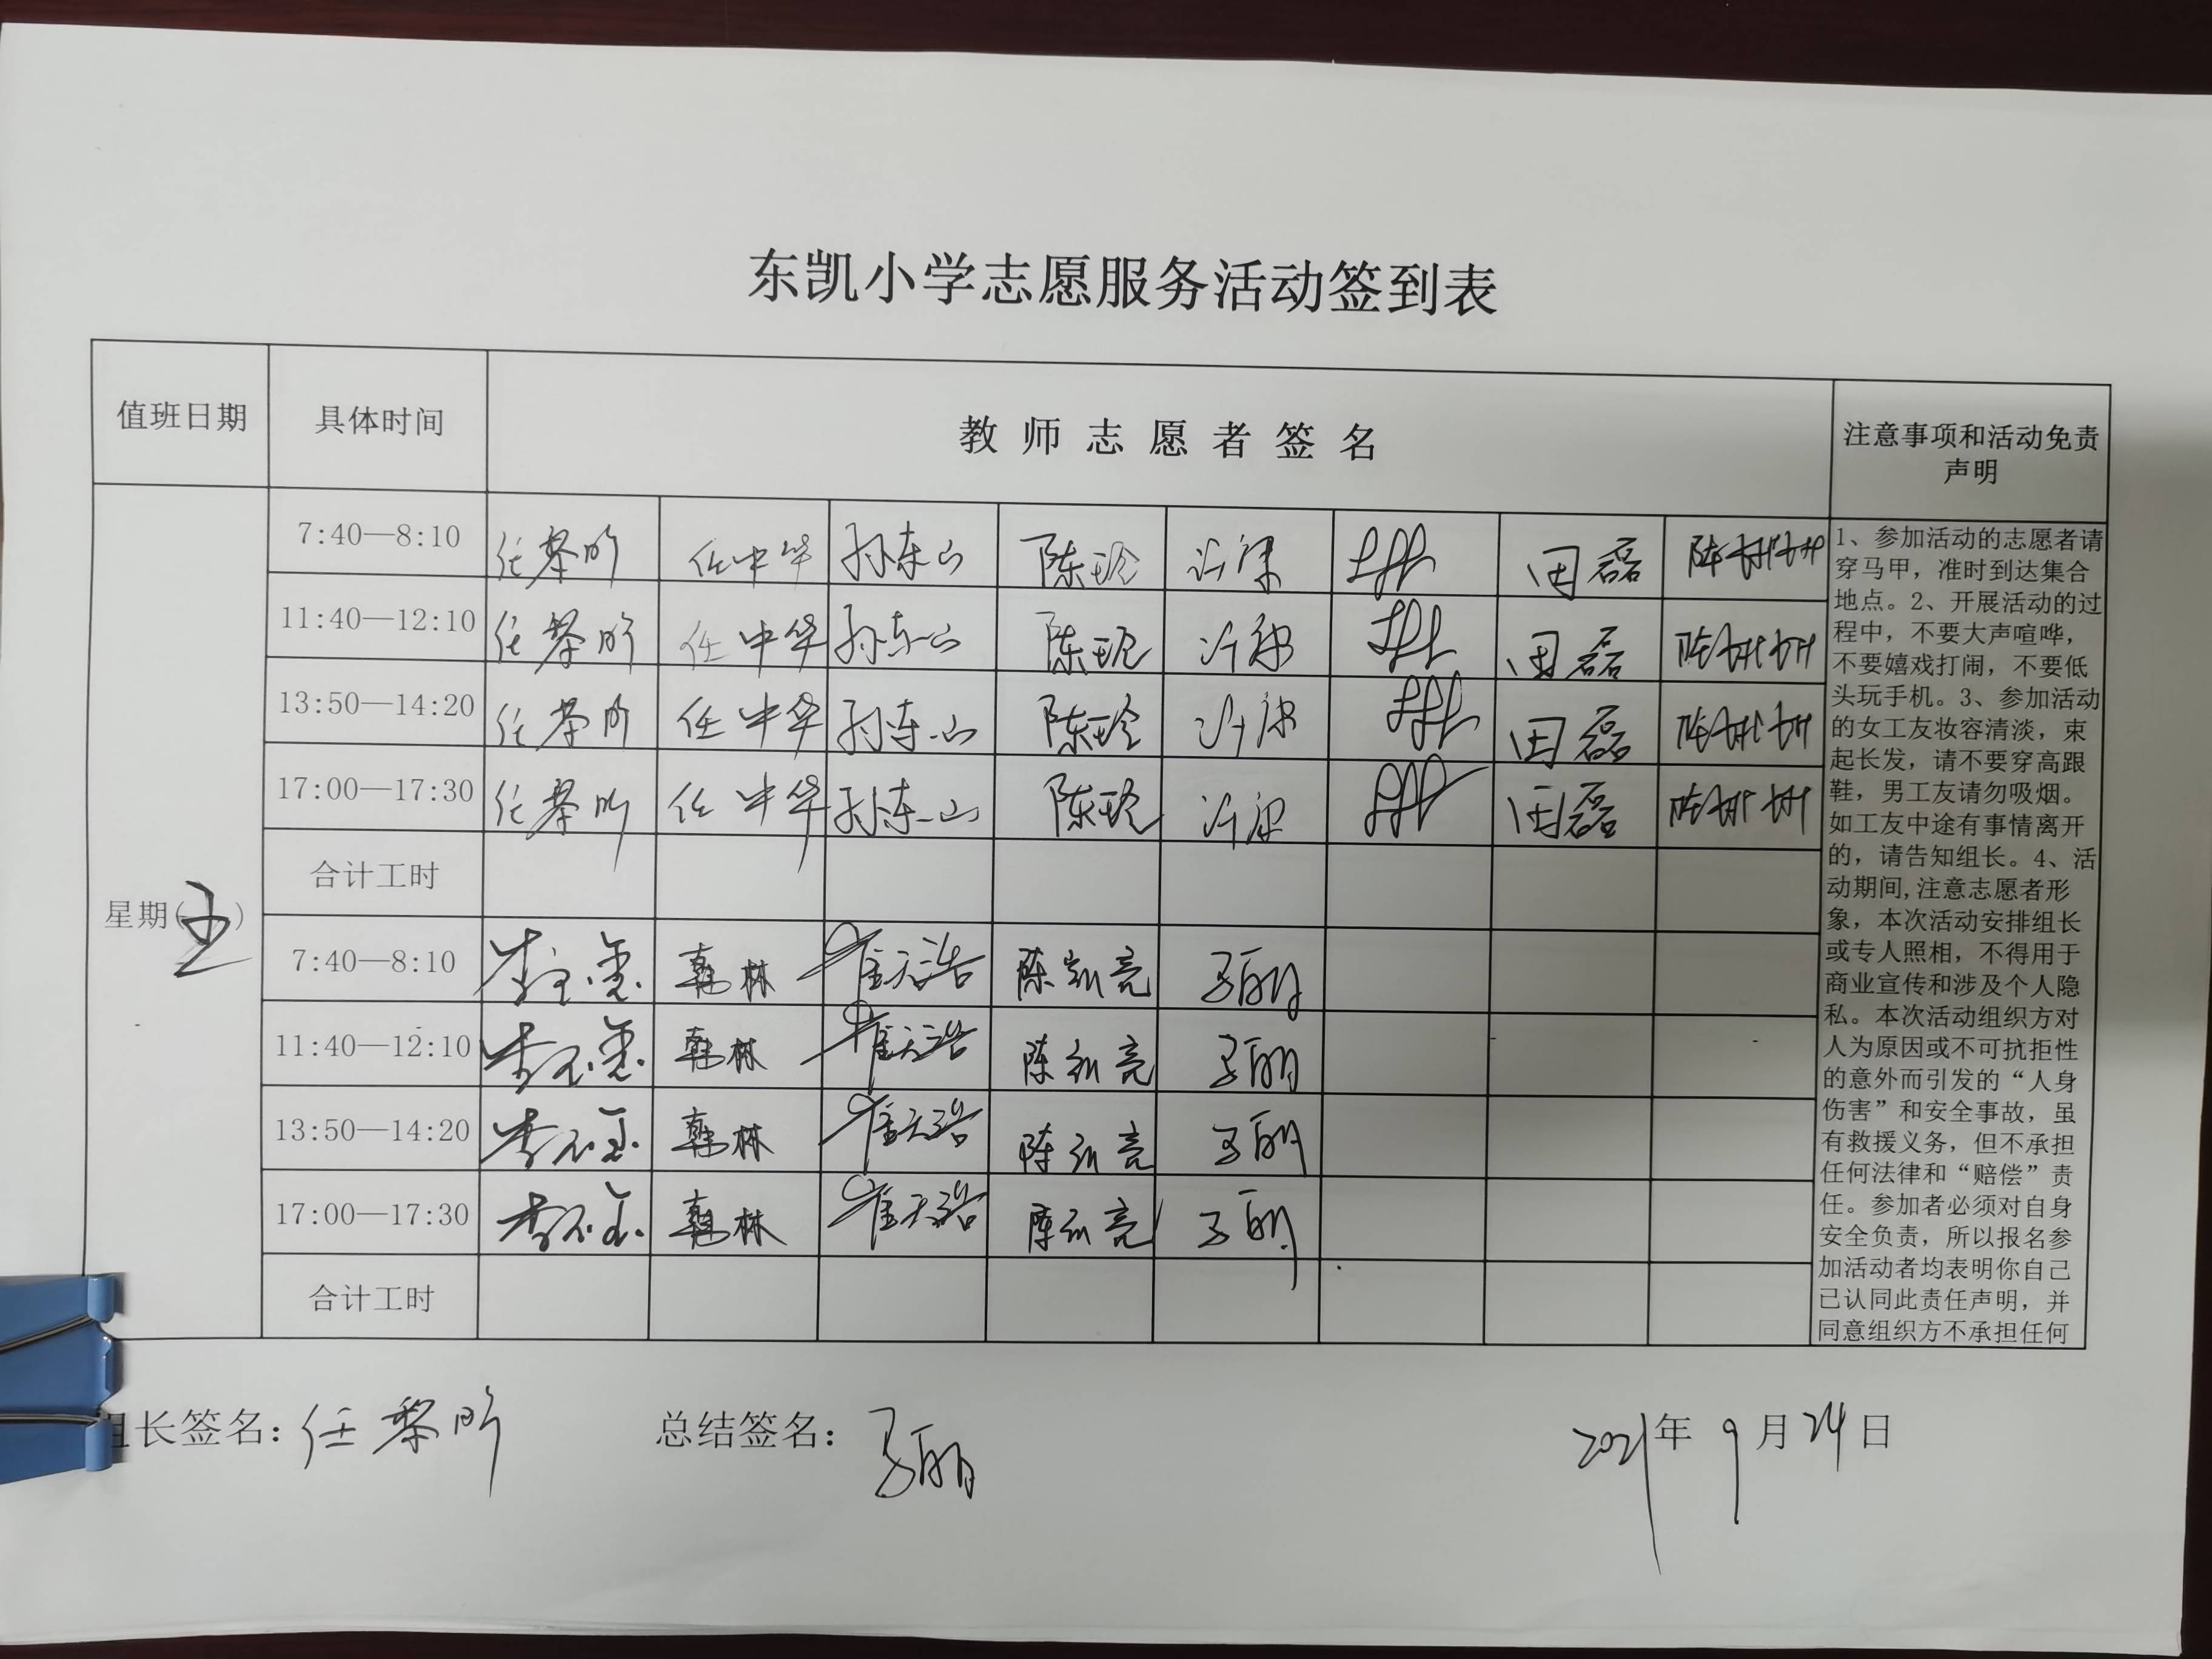 东凯小学志愿服务活动签到表
值班日期 具体时间 教师志愿者签名 注意事项和活动免责声明
星期( )
7:40—8:10 任黎昕 任中华 孙东山 陈玲 田磊 陈树树
11:40—12:10 任黎昕 任中华 孙东山 陈玲 田磊 陈树树
13:50—14:20 任黎昕 任中华 孙东山 陈玲 田磊 陈树树
17:00—17:30 任黎昕 任中华 孙东山 陈玲 田磊 陈树树
合计工时
7:40—8:10 韩林 崔天浩 陈凯亮 马丽
11:40—12:10 韩林 崔天浩 陈凯亮 马丽
13:50—14:20 韩林 崔天浩 陈凯亮 马丽
17:00—17:30 韩林 崔天浩 陈凯亮 马丽
合计工时
1、参加活动的志愿者请
穿马甲，准时到达集合
地点。2、开展活动的过
程中，不要大声喧哗，
不要嬉戏打闹，不要低
头玩手机。3、参加活动
的女工友妆容清淡，束
起长发，请不要穿高跟
鞋，男工友请勿吸烟。
如工友中途有事情离开
的，请告知组长。4、活
动期间,注意志愿者形
象，本次活动安排组长
或专人照相，不得用于
商业宣传和涉及个人隐
私。本次活动组织方对
人为原因或不可抗拒性
的意外而引发的“人身
伤害”和安全事故，虽
有救援义务，但不承担
任何法律和“赔偿”责
任。参加者必须对自身
安全负责，所以报名参
加活动者均表明你自己
已认同此责任声明，并
同意组织方不承担任何
组长签名：任黎昕 总结签名：马丽 2021年9月24日